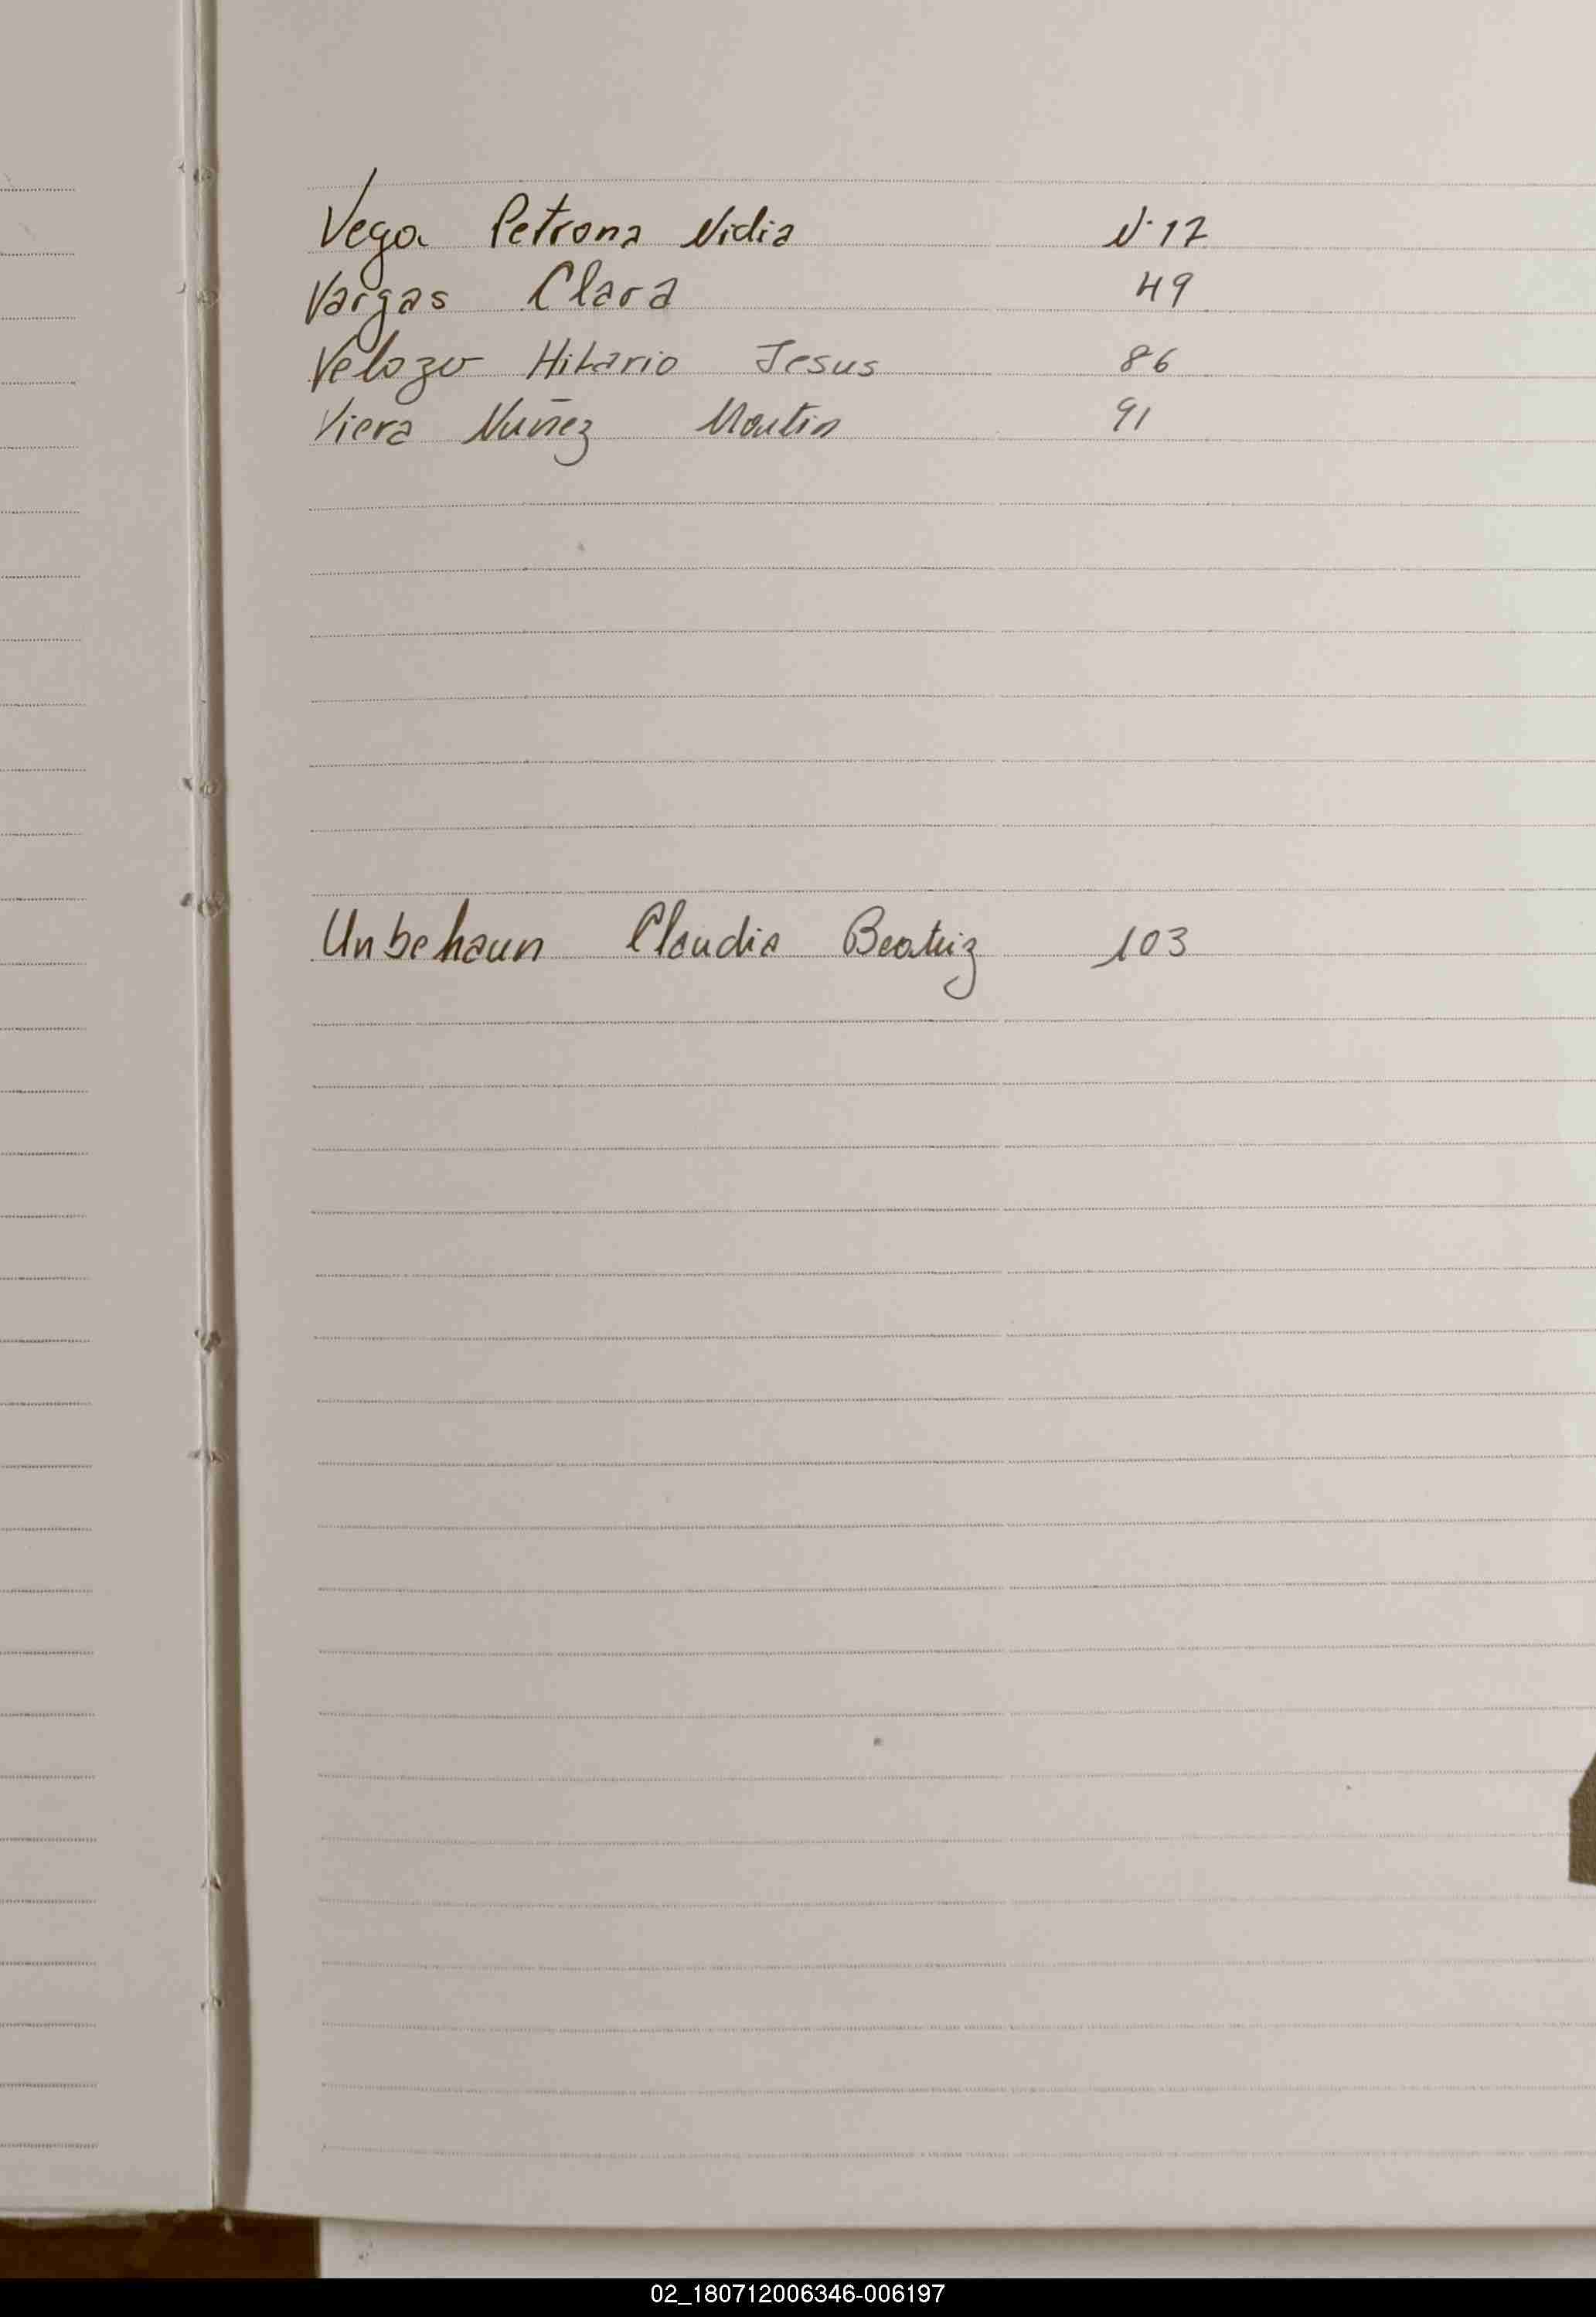 Vega Petrona Nidia N° 17
Vargas Clara 49
Velozo Hilario Jesus 86
Viera Nuñez Martin 91
Unbehaun Claudia Beatriz 103
02_180712006346-006197